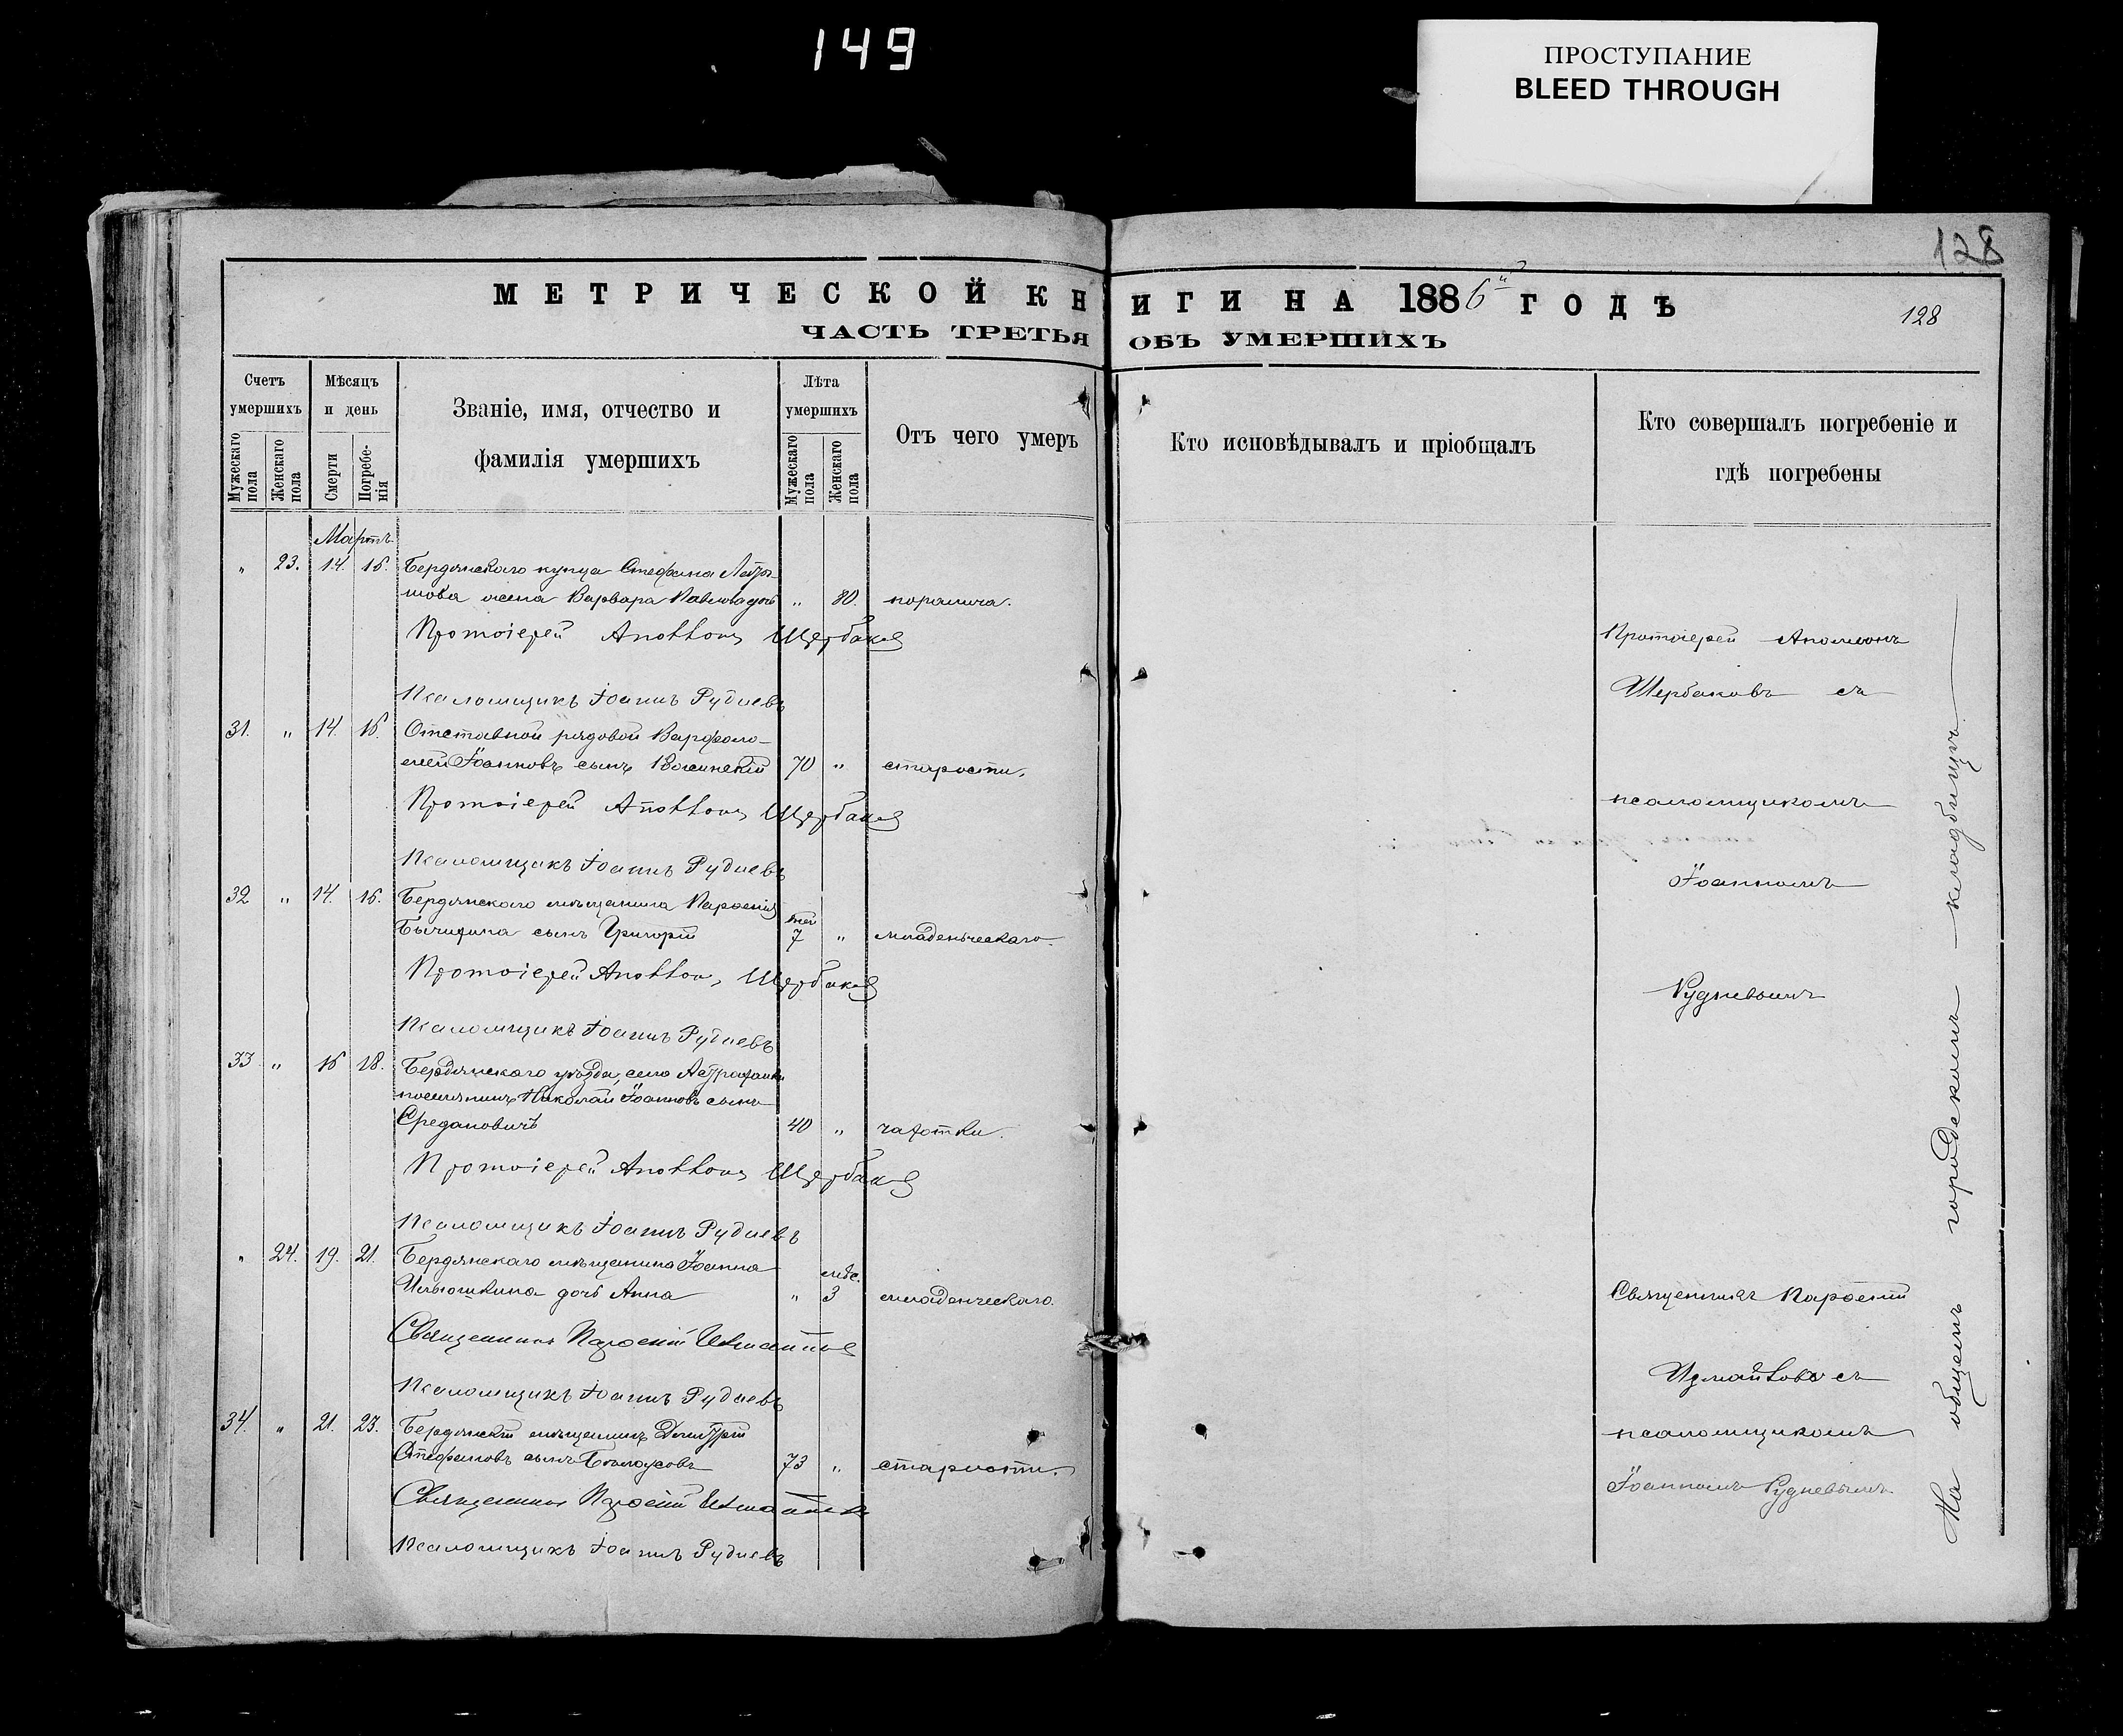 149
ПРОСТУПАНИЕ
BLEED THROUGH
128
МЕТРИЧЕСКОЙ КНИГИ НА 1886й ГОДЪ
128
ЧАСТЬ ТРЕТЬЯ ОБЪ УМЕРШИХЪ
Счетъ умершихъ
Мужескаго пола
Женскаго пола
Мѣсяцъ и день
Смерти
Погребенія
Званіе, имя, отчество и
фамилія умершихъ
Лѣта умершихъ
Мужескаго пола
Женскаго пола
Отъ чего умеръ
Кто исповѣдывалъ и пріобщалъ
Кто совершалъ погребеніе и
гдѣ погребены
Мартъ
" 23. 14. 16. Бердянскаго купца Стефана
жена Варвара Павлова дочь " 80. паралича.
Протоіерей Аполлонъ Щербаковъ
Псаломщикъ Іоаннъ Рудневъ
31. " 14. 16. Отставной рядовой Варфоло-
мей Іоанновъ сынъ 70 " старости.
Протоіерей Аполлонъ Щербаковъ
Псаломщикъ Іоаннъ Рудневъ
32 " 14. 16. Бердянскаго мѣщанина Парѳенія
сынъ Григорій дней 7 " младенческаго.
Протоіерей Аполлонъ Щербаковъ
Псаломщикъ Іоаннъ Рудневъ
33 " 16 18. Бердянскаго уѣзда, села Астраханки
поселянинъ Николай Іоанновъ сынъ
Средановичъ 40 " чахотки.
Протоіерей Аполлонъ Щербаковъ
Псаломщикъ Іоаннъ Рудневъ
" 24. 19. 21. Бердянскаго мѣщанина Іоанна
Илюшкина дочь Анна " мѣс. 3 младенческаго.
Священникъ Парѳеній Измаиловъ
Псаломщикъ Іоаннъ Рудневъ
34. " 21. 23. Бердянскій мѣщанинъ Димитрій
Стефановъ сынъ Бѣлоусовъ 73 " старости.
Священникъ Парѳеній Измаиловъ
Псаломщикъ Іоаннъ Рудневъ
Протоіерей Аполлонъ
Щербаковъ съ
псаломщикомъ
Іоанномъ
Рудневымъ
Священникъ Парѳеній
Измаиловъ съ
псаломщикомъ
Іоанномъ Рудневымъ
На общемъ городскомъ кладбищѣ.